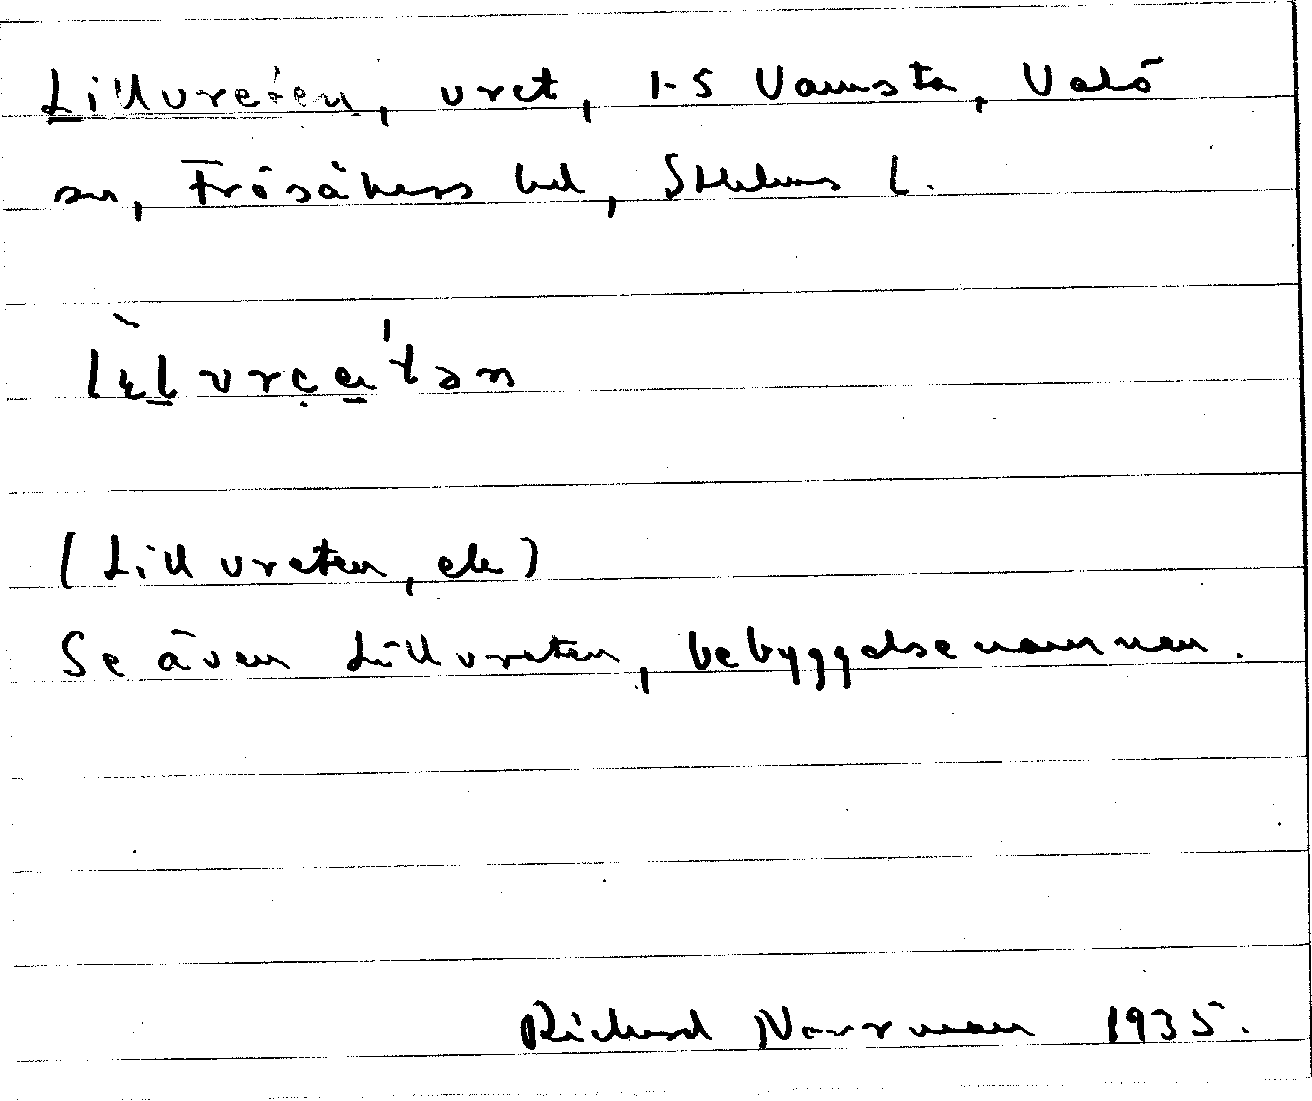 Lillvreten, vret, 1-5 Vamsta, Valö
sn, Frösåkers hd, Sthlms l.
lìlvre̱'tən
(Lillvreten, ek)
Se även Lillvreten, bebyggelsenamnen.
Richard Norrman 1935.